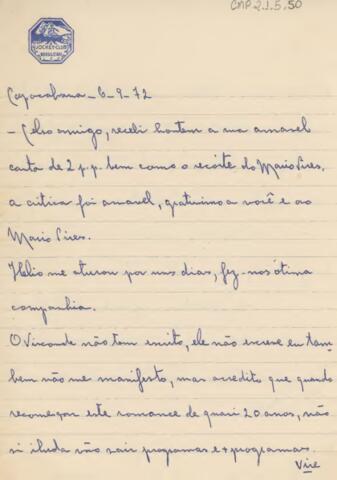 CMP2.1.5.50
JOCKEY-CLUB
BRASILEIRO
Copacabana - 6-9-72
- Celso amigo, recebi hontem a sua amavel
carta de 2 p.p. bem como o recórte do Mario Pires,
a critica foi amavel, gratissimo a você e ao
Mario Pires.
Helio me aturou por uns dias, fez-nos ótima
companhia.
O Visconde não tem escrito, ele não escreve eu tam-
bem não me manifesto, mas acredito que quando
recomeçar este romance de quasi 20 anos, não
si iluda vão sair programas e + programas.
Vire